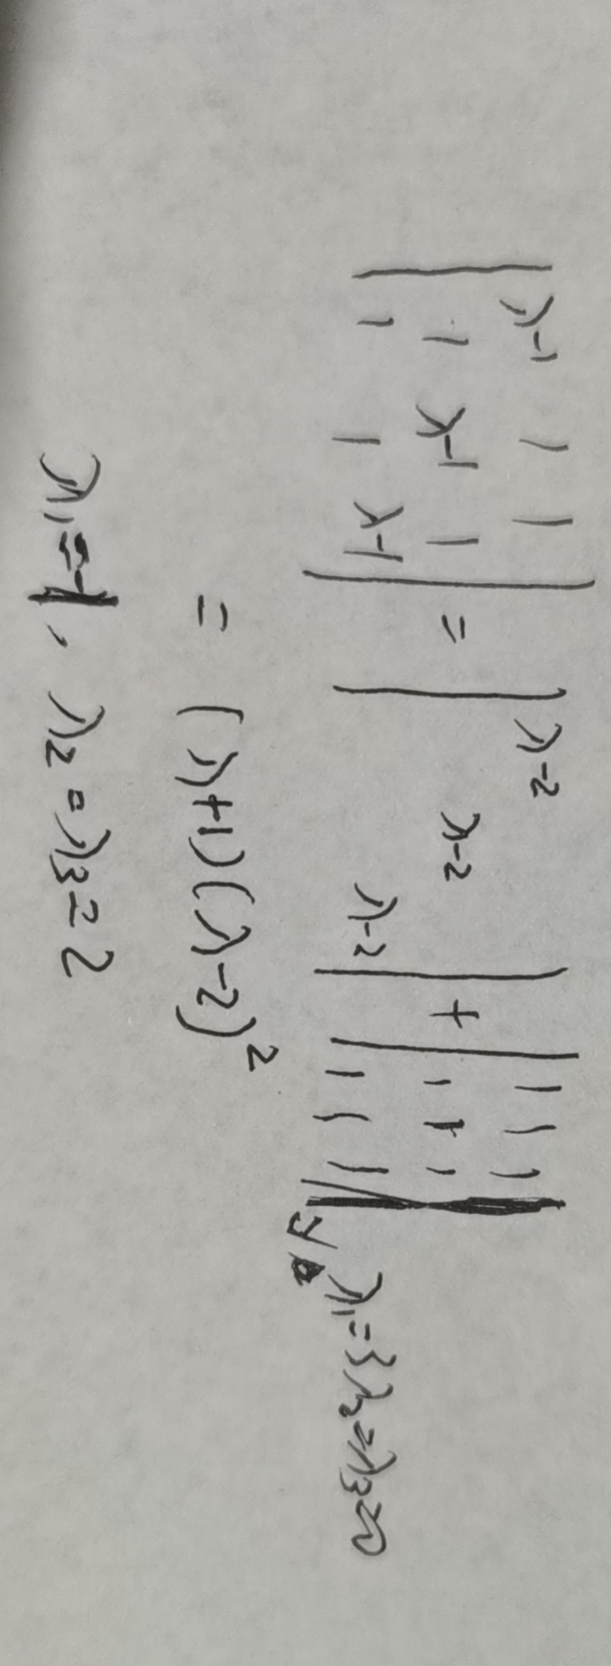 | λ-1 1 1 | = | λ-2 | + | 1 1 1 |
| 1 λ-1 1 | | λ-2 | | 1 1 1 |
| 1 1 λ-1 | | λ-2 | | 1 1 1 |
λ₁=3 λ₂=λ₃=0
= (λ+1)(λ-2)²
λ₁=-1, λ₂=λ₃=2